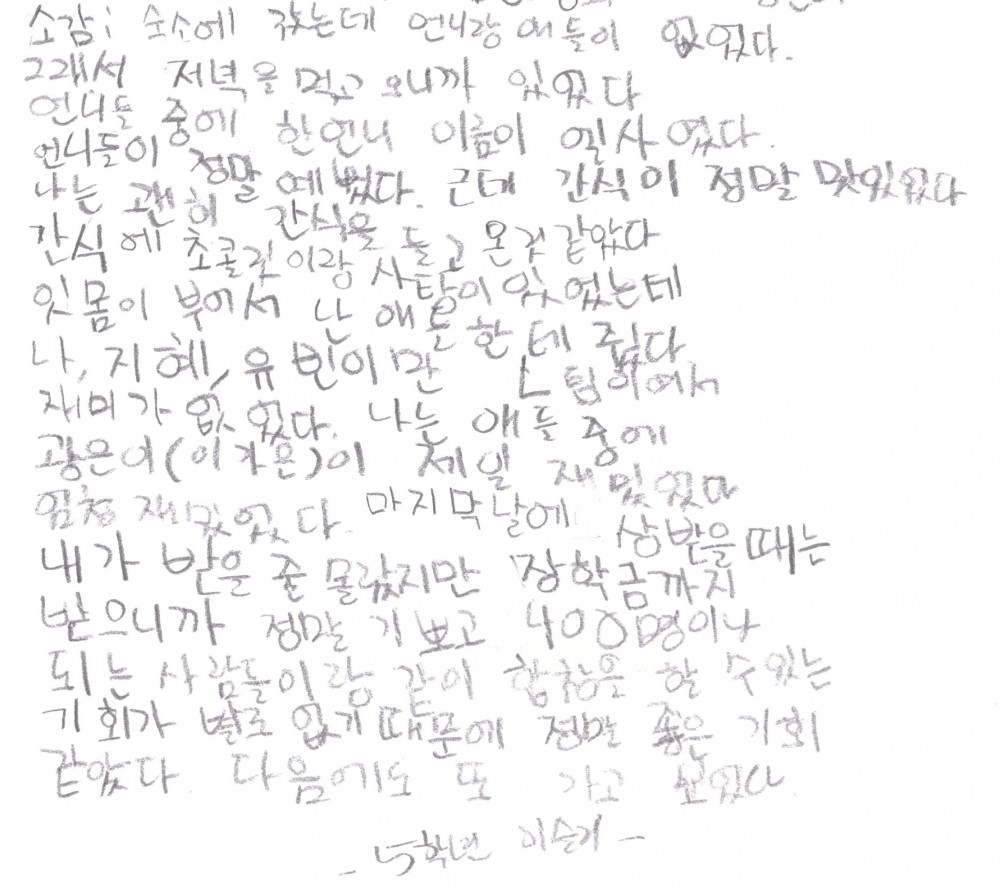 소감: 숙소에 갔는데 언니랑 애들이 없었다.
그래서 저녁을 먹고 오니까 있었다
언니들 중에 한언니 이름이 엘사 였다.
언니들이 정말 예뻤다. 근데 간식이 정말 맛있었다
나는 괜히 간식을 들고 온것같았다
간식에 초콜릿이랑 사탕이 있었는데
잇몸이 부어서 난 애들한테 줬다.
나, 지혜, 유빈이만 L팀이여서
재미가 없었다. 나는 애들 중에
광은이(이가은)이 제일 재밌었다
엄청 재밌었다. 마지막날에 상받을때는
내가 받을 줄 몰랐지만 장학금까지
받으니까 정말 기쁘고 400명이나
되는 사람들이랑 같이 합창을 할 수있는
기회가 별로 없기 때문에 정말 좋은 기회
같았다. 다음에도 또 가고 싶었다.
- 5학년 이슬기 -